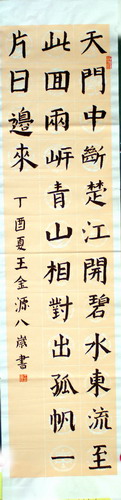 天門中斷楚江開碧水東流至
此回兩岍青山相對出孤帆一
片日邊來
丁酉夏王金源八歲書